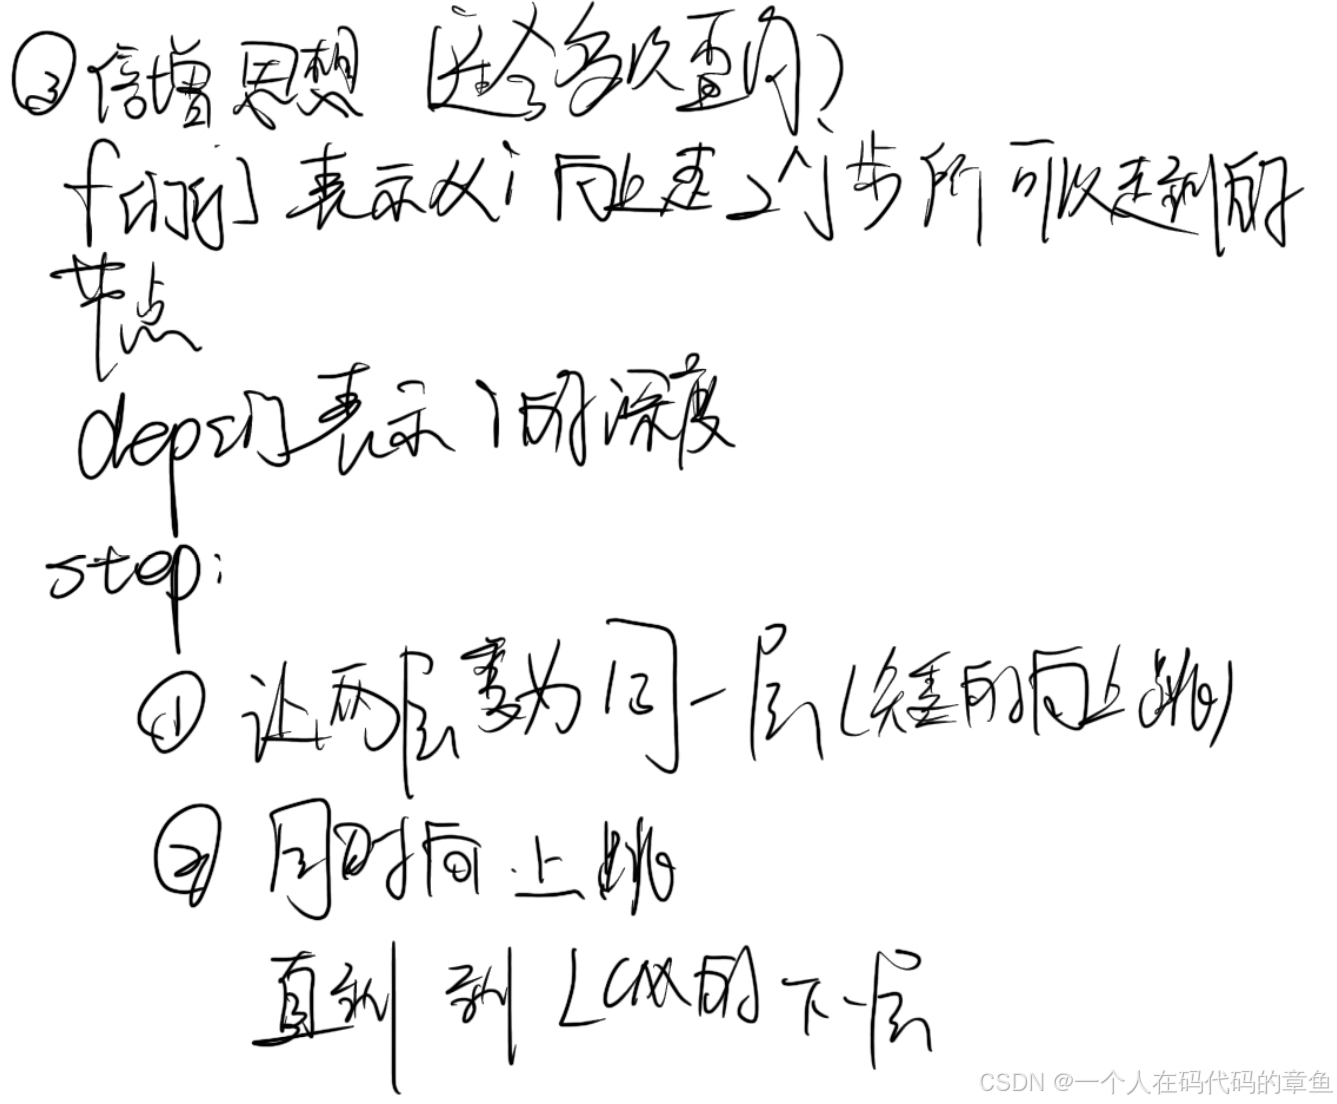 ③倍增思想 (适合多次查询)
f[i][j]表示从i向上走2^j步所可以走到的
节点
dep[i]表示i的深度
step:
① 让两层变为同一层(矮的向上跳)
② 同时向上跳
直到 到LCA的下一层
CSDN @一个人在码代码的章鱼